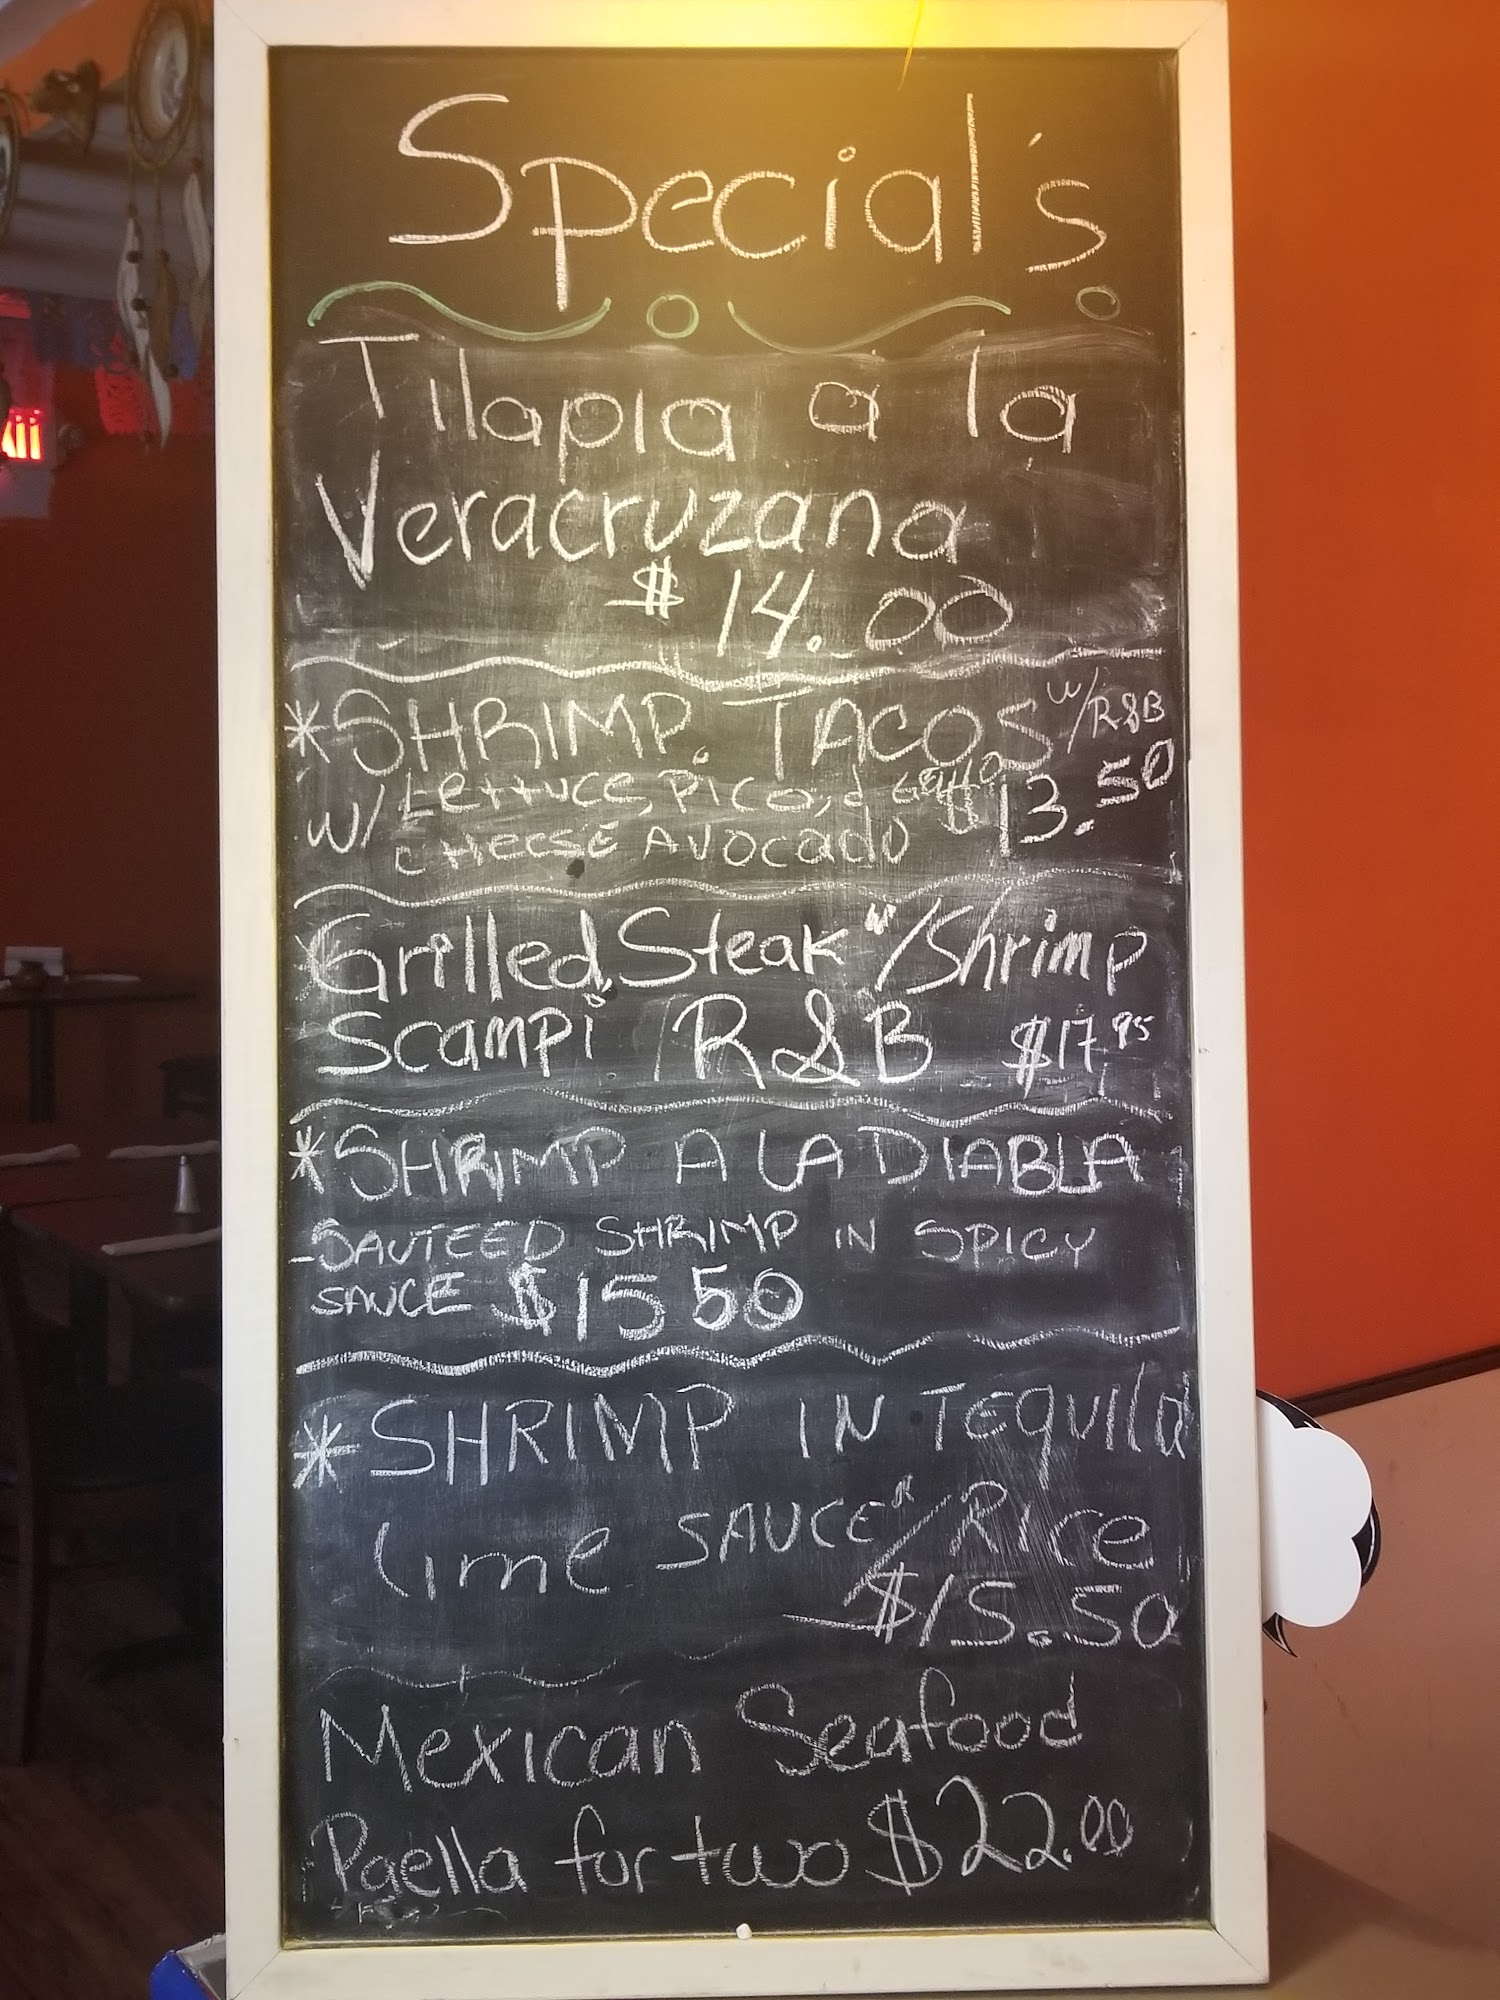 Special's
Tilapia a la
Veracruzana
$14.00
*SHRIMP. TACOS w/R&B
w/ Lettuce, Pico, d Gallo $13.50
cheese Avocado
Grilled Steak w/Shrimp
Scampi /R&B $17.95
*SHRIMP A LA DIABLA
-SAUTEED SHRIMP IN SPICY
SAUCE $15 50
*SHRIMP IN Tequila
lime SAUCE w/Rice
$15.50
Mexican Seafood
Paella for two $22.00